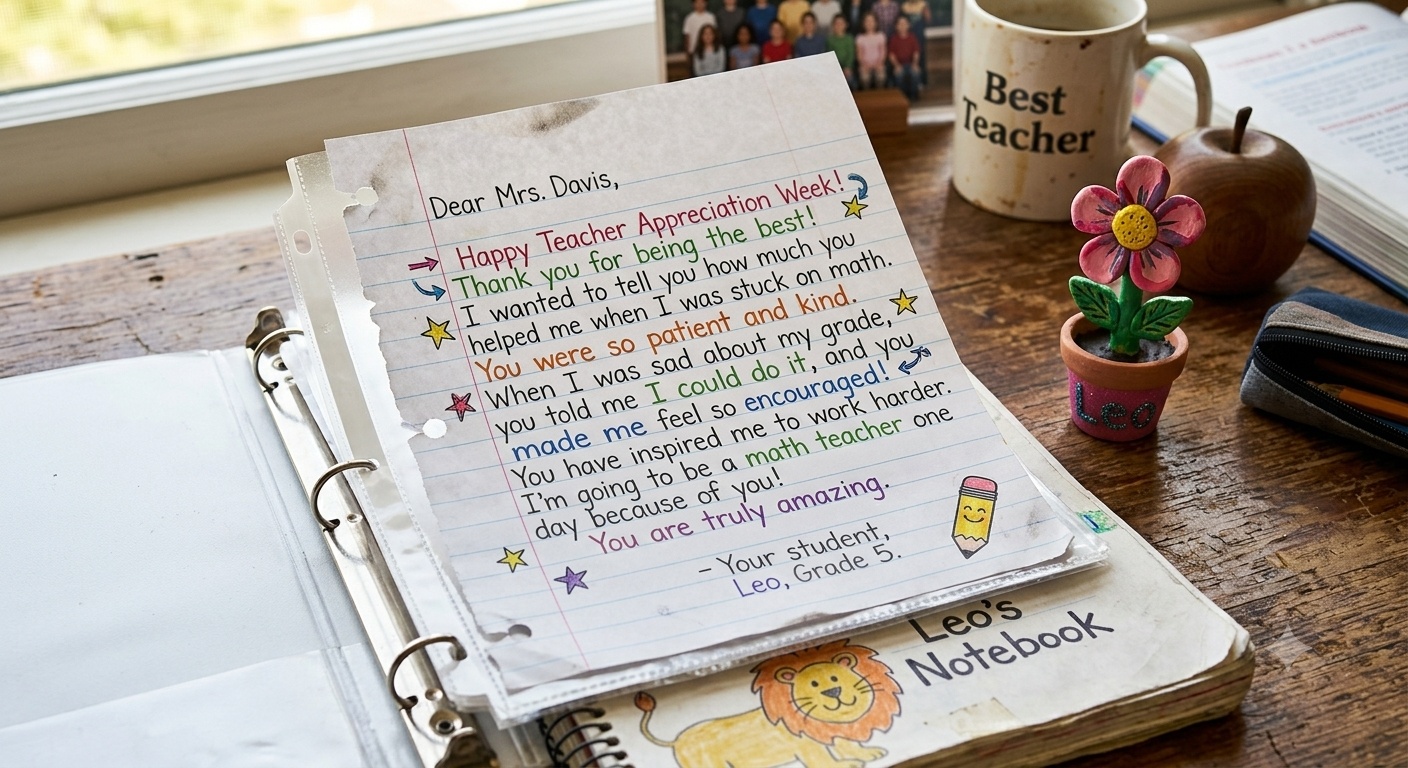 Dear Mrs. Davis,
Happy Teacher Appreciation Week!
Thank you for being the best!
I wanted to tell you how much you
helped me when I was stuck on math.
You were so patient and kind.
When I was sad about my grade,
you told me I could do it, and you
made me feel so encouraged!
You have inspired me to work harder.
I'm going to be a math teacher one
day because of you!
You are truly amazing.
– Your student,
Leo, Grade 5.
Best
Teacher
Leo
Leo's
Notebook